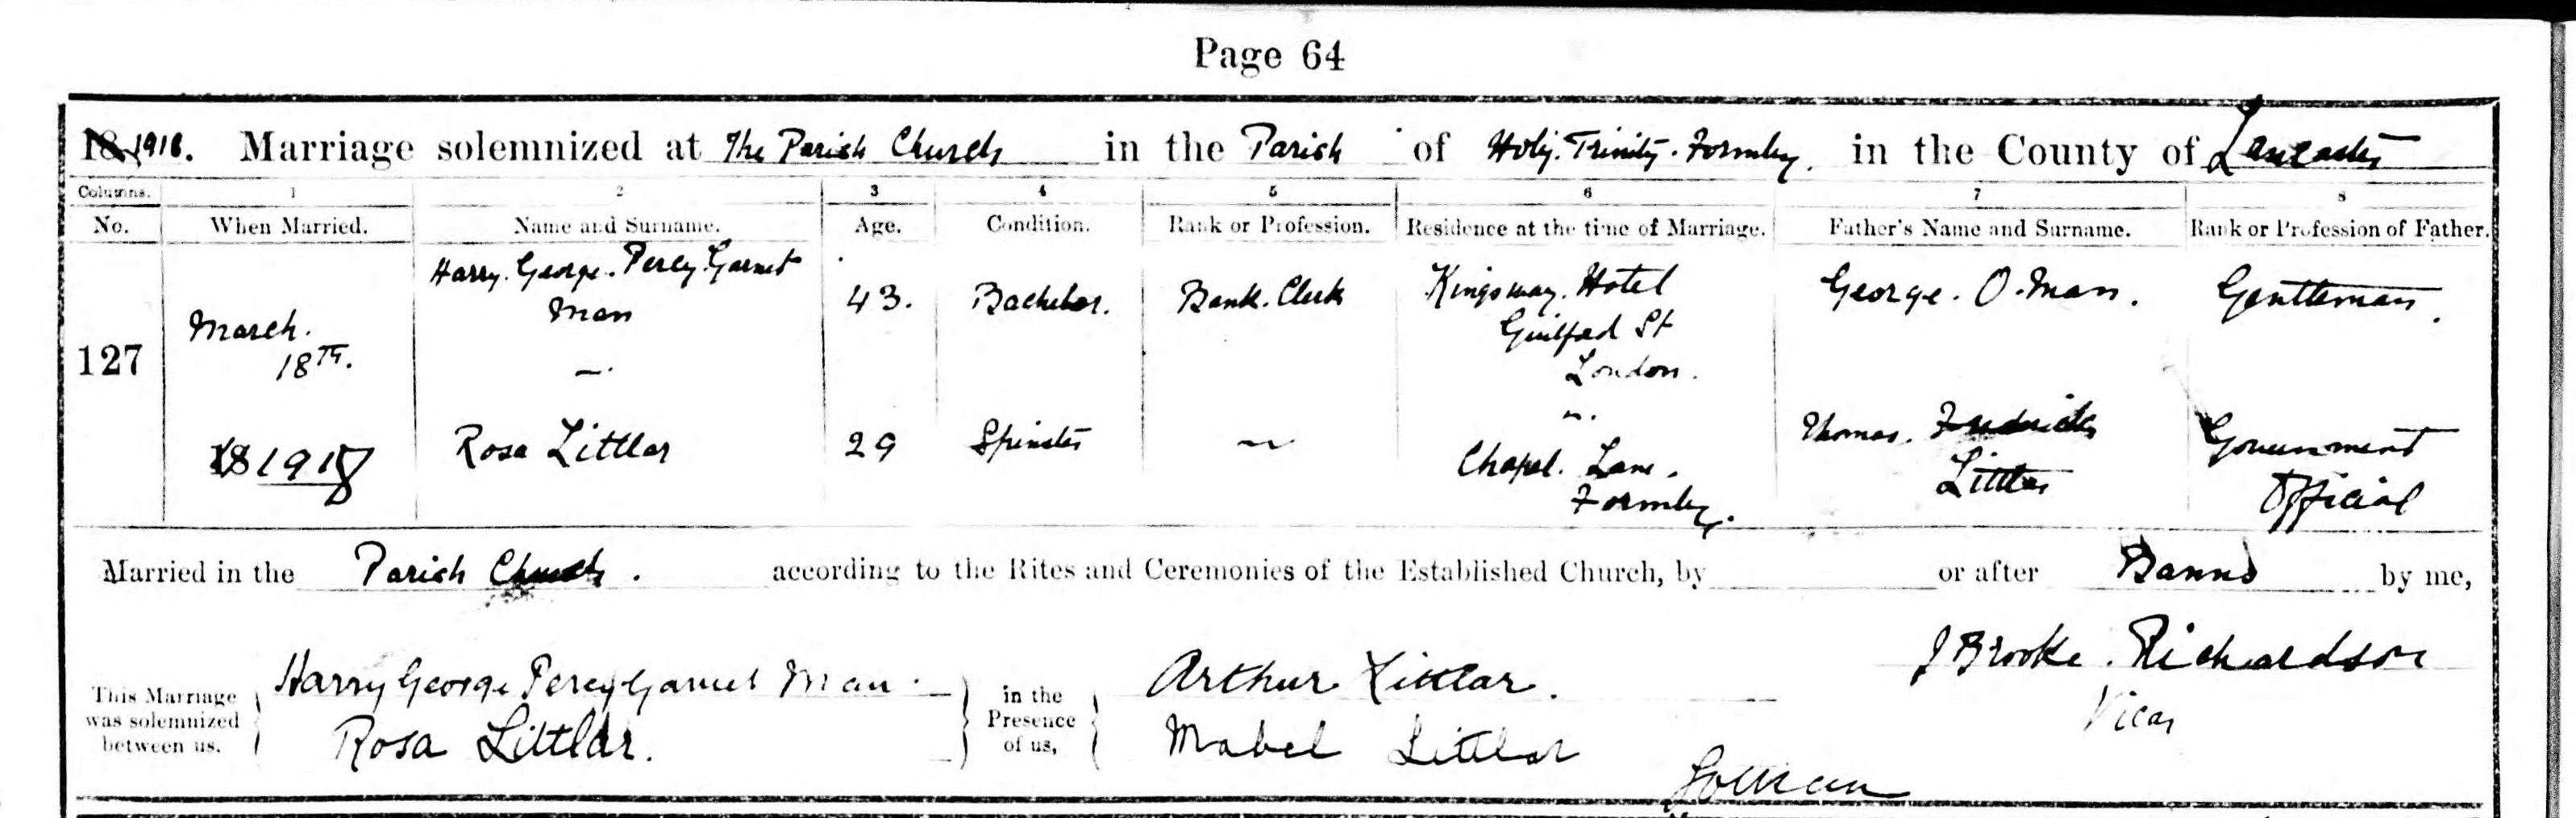 Page 64
18 1918. Marriage solemnized at The Parish Church in the Parish of Holy. Trinity. Formby. in the County of Lancaster
Columns. 1 2 3 4 5 6 7 8
No. When Married. Name and Surname. Age. Condition. Rank or Profession. Residence at the time of Marriage. Father's Name and Surname. Rank or Profession of Father.
127
March.
18TH.
18 1918
Harry. George. Percy. Garnet
Man
43. Bachelor. Bank. Clerk
Kingsway. Hotel
Guilford St
London.
George. O. Man.
Gentleman.
Rosa Littlar
29 Spinster
Chapel. Lane.
Formby.
Thomas. Fredrick
Littlar
Government
Official
Married in the Parish Church. according to the Rites and Ceremonies of the Established Church, by or after Banns by me,
This Marriage
was solemnized
between us,
Harry George Percy Garnet Man.
Rosa Littlar.
in the
Presence
of us,
Arthur Littlar.
Mabel Littlar
J Brooke. Richardson
Vicar